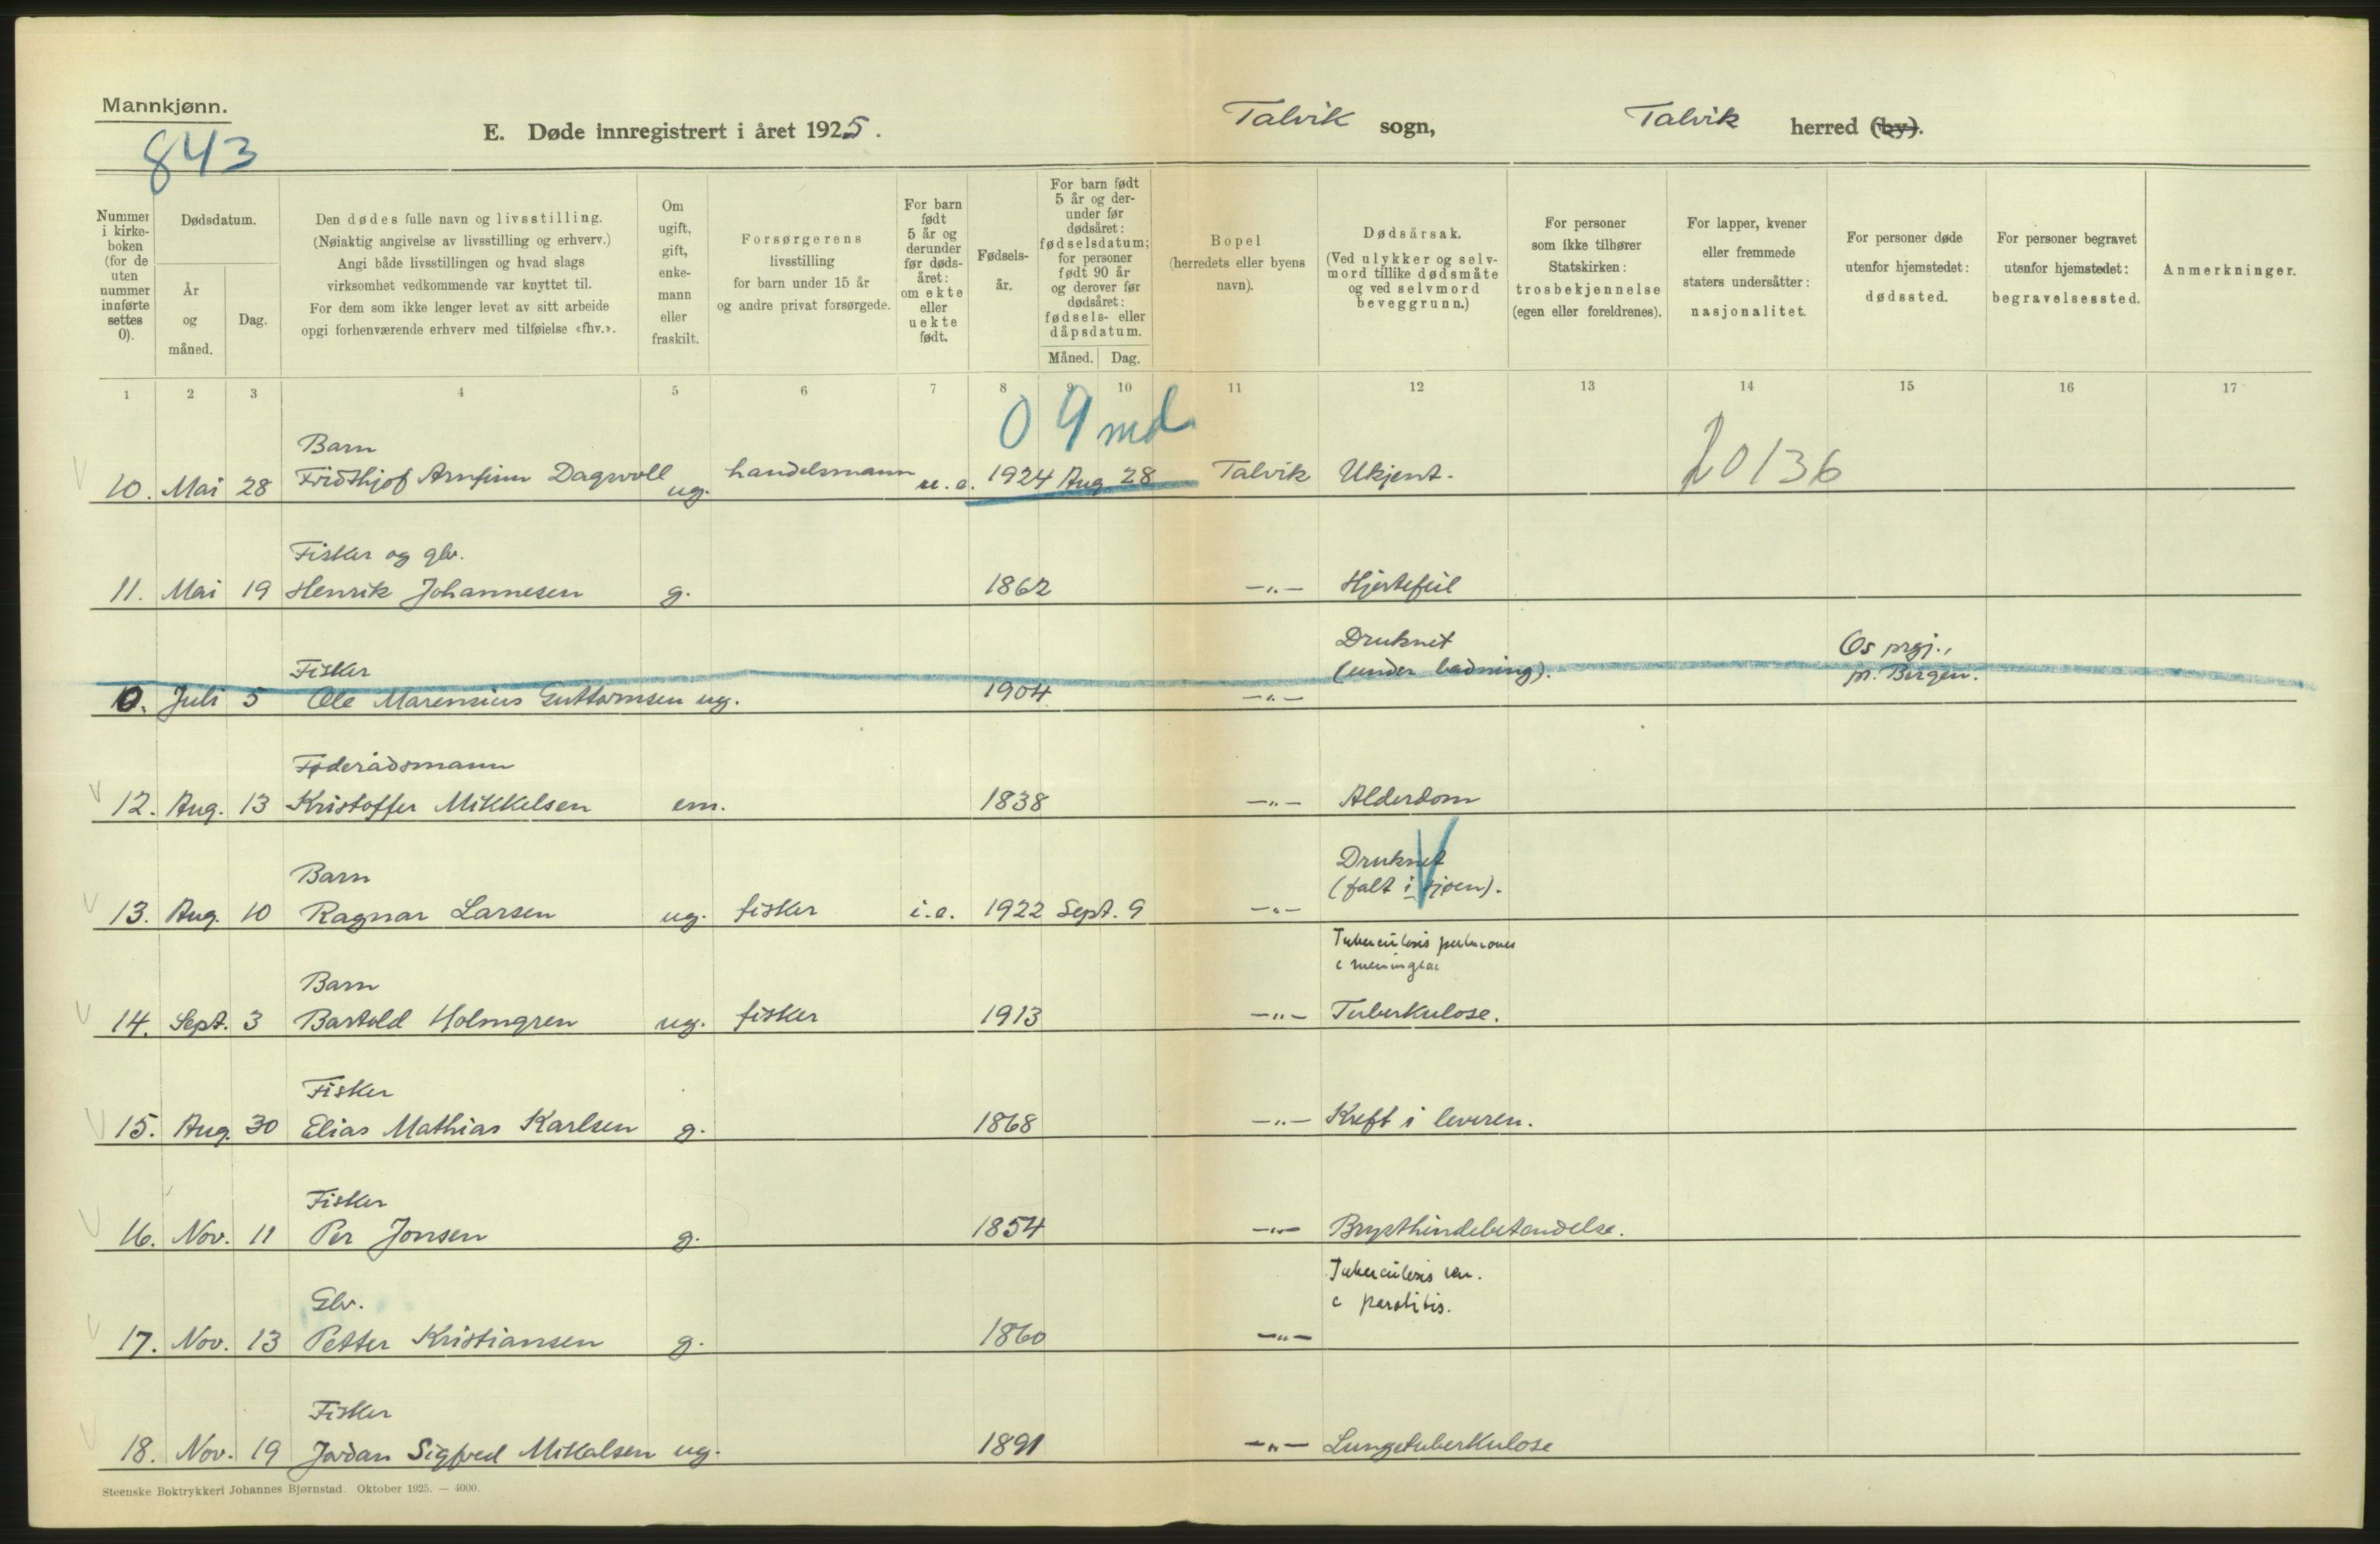 Mannkjønn.
843
E. Døde innregistrert i året 1925.
Talvik sogn, Talvik herred (by).
Nummer i kirke-boken (for de uten nummer innførte settes 0).
Dødsdatum.
År og måned.
Dag.
Den dødes fulle navn og livsstilling.
(Nøiaktig angivelse av livsstilling og erhverv.)
Angi både livsstillingen og hvad slags
virksomhet vedkommende var knyttet til.
For dem som ikke lenger levet av sitt arbeide
opgi forhenværende erhverv med tilføielse «fhv.».
Om ugift, gift, enke-mann eller fraskilt.
Forsørgerens
livsstilling
for barn under 15 år
og andre privat forsørgede.
For barn født 5 år og derunder før døds-året: om ekte eller uekte født.
Fødsels-år.
For barn født 5 år og der-under før dødsåret: fødselsdatum; for personer født 90 år og derover før dødsåret: fødsels- eller dåpsdatum.
Måned. Dag.
Bopel
(herredets eller byens
navn).
Dødsårsak.
(Ved ulykker og selv-
mord tillike dødsmåte
og ved selvmord
beveggrunn.)
For personer
som ikke tilhører
Statskirken:
trosbekjennelse
(egen eller foreldrenes).
For lapper, kvener
eller fremmede
staters undersåtter:
nasjonalitet.
For personer døde
utenfor hjemstedet:
dødssted.
For personer begravet
utenfor hjemstedet:
begravelsessted.
Anmerkninger.
1 2 3 4 5 6 7 8 9 10 11 12 13 14 15 16 17
0 9 md
Barn
10. Mai 28 Fridthjof Arnfinn Dagsvoll ug. handelsmann u.e. 1924 Aug 28 Talvik Ukjent. 20136
Fisker og gbr.
11. Mai 19 Henrik Johannesen g. 1862 -"- Hjertefeil
Fisker Druknet (under badning). Os prgj., pr. Bergen.
0. Juli 5 Ole Marensius Guttormsen ug. 1904 -"-
Føderådsmann
12. Aug. 13 Kristoffer Mikkelsen em. 1838 -"- Alderdom
Barn Druknet (falt i sjøen).
13. Aug. 10 Ragnar Larsen ug. fisker i.e. 1922 Sept. 9 -"-
Tuberculosis pulmones
c meningeae
Barn
14. Sept. 3 Bartold Holmgren ug. fisker 1913 -"- Tuberkulose.
Fisker
15. Aug. 30 Elias Mathias Karlsen g. 1868 -"- Kreft i leveren.
Fisker
16. Nov. 11 Per Jonsen g. 1854 -"- Brysthindebetendelse.
Tuberculosis ren.
c parotitis.
Gbr.
17. Nov. 13 Petter Kristiansen g. 1860 -"-
Fisker
18. Nov. 19 Jordan Sigfred Mikalsen ug. 1891 -"- Lungetuberkulose
Steenske Boktrykkeri Johannes Bjørnstad. Oktober 1925. — 4000.